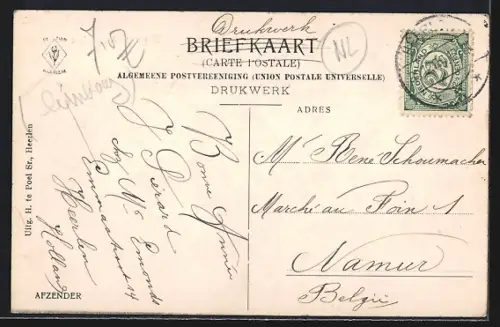 Drukwerk
BRIEFKAART
(CARTE POSTALE)
ALGEMEENE POSTVEREENIGING (UNION POSTALE UNIVERSELLE)
DRUKWERK
ADRES
NL
Limbourg
Uitg. H. te Poel Sr., Heerlen
Bonne Année
J Pierard
chez Mr Emonds
Emmastraat 14
Heerlen
Holland
AFZENDER
Mr Rene Schoumacher
Marché au Foin 1
Namur
Belgie